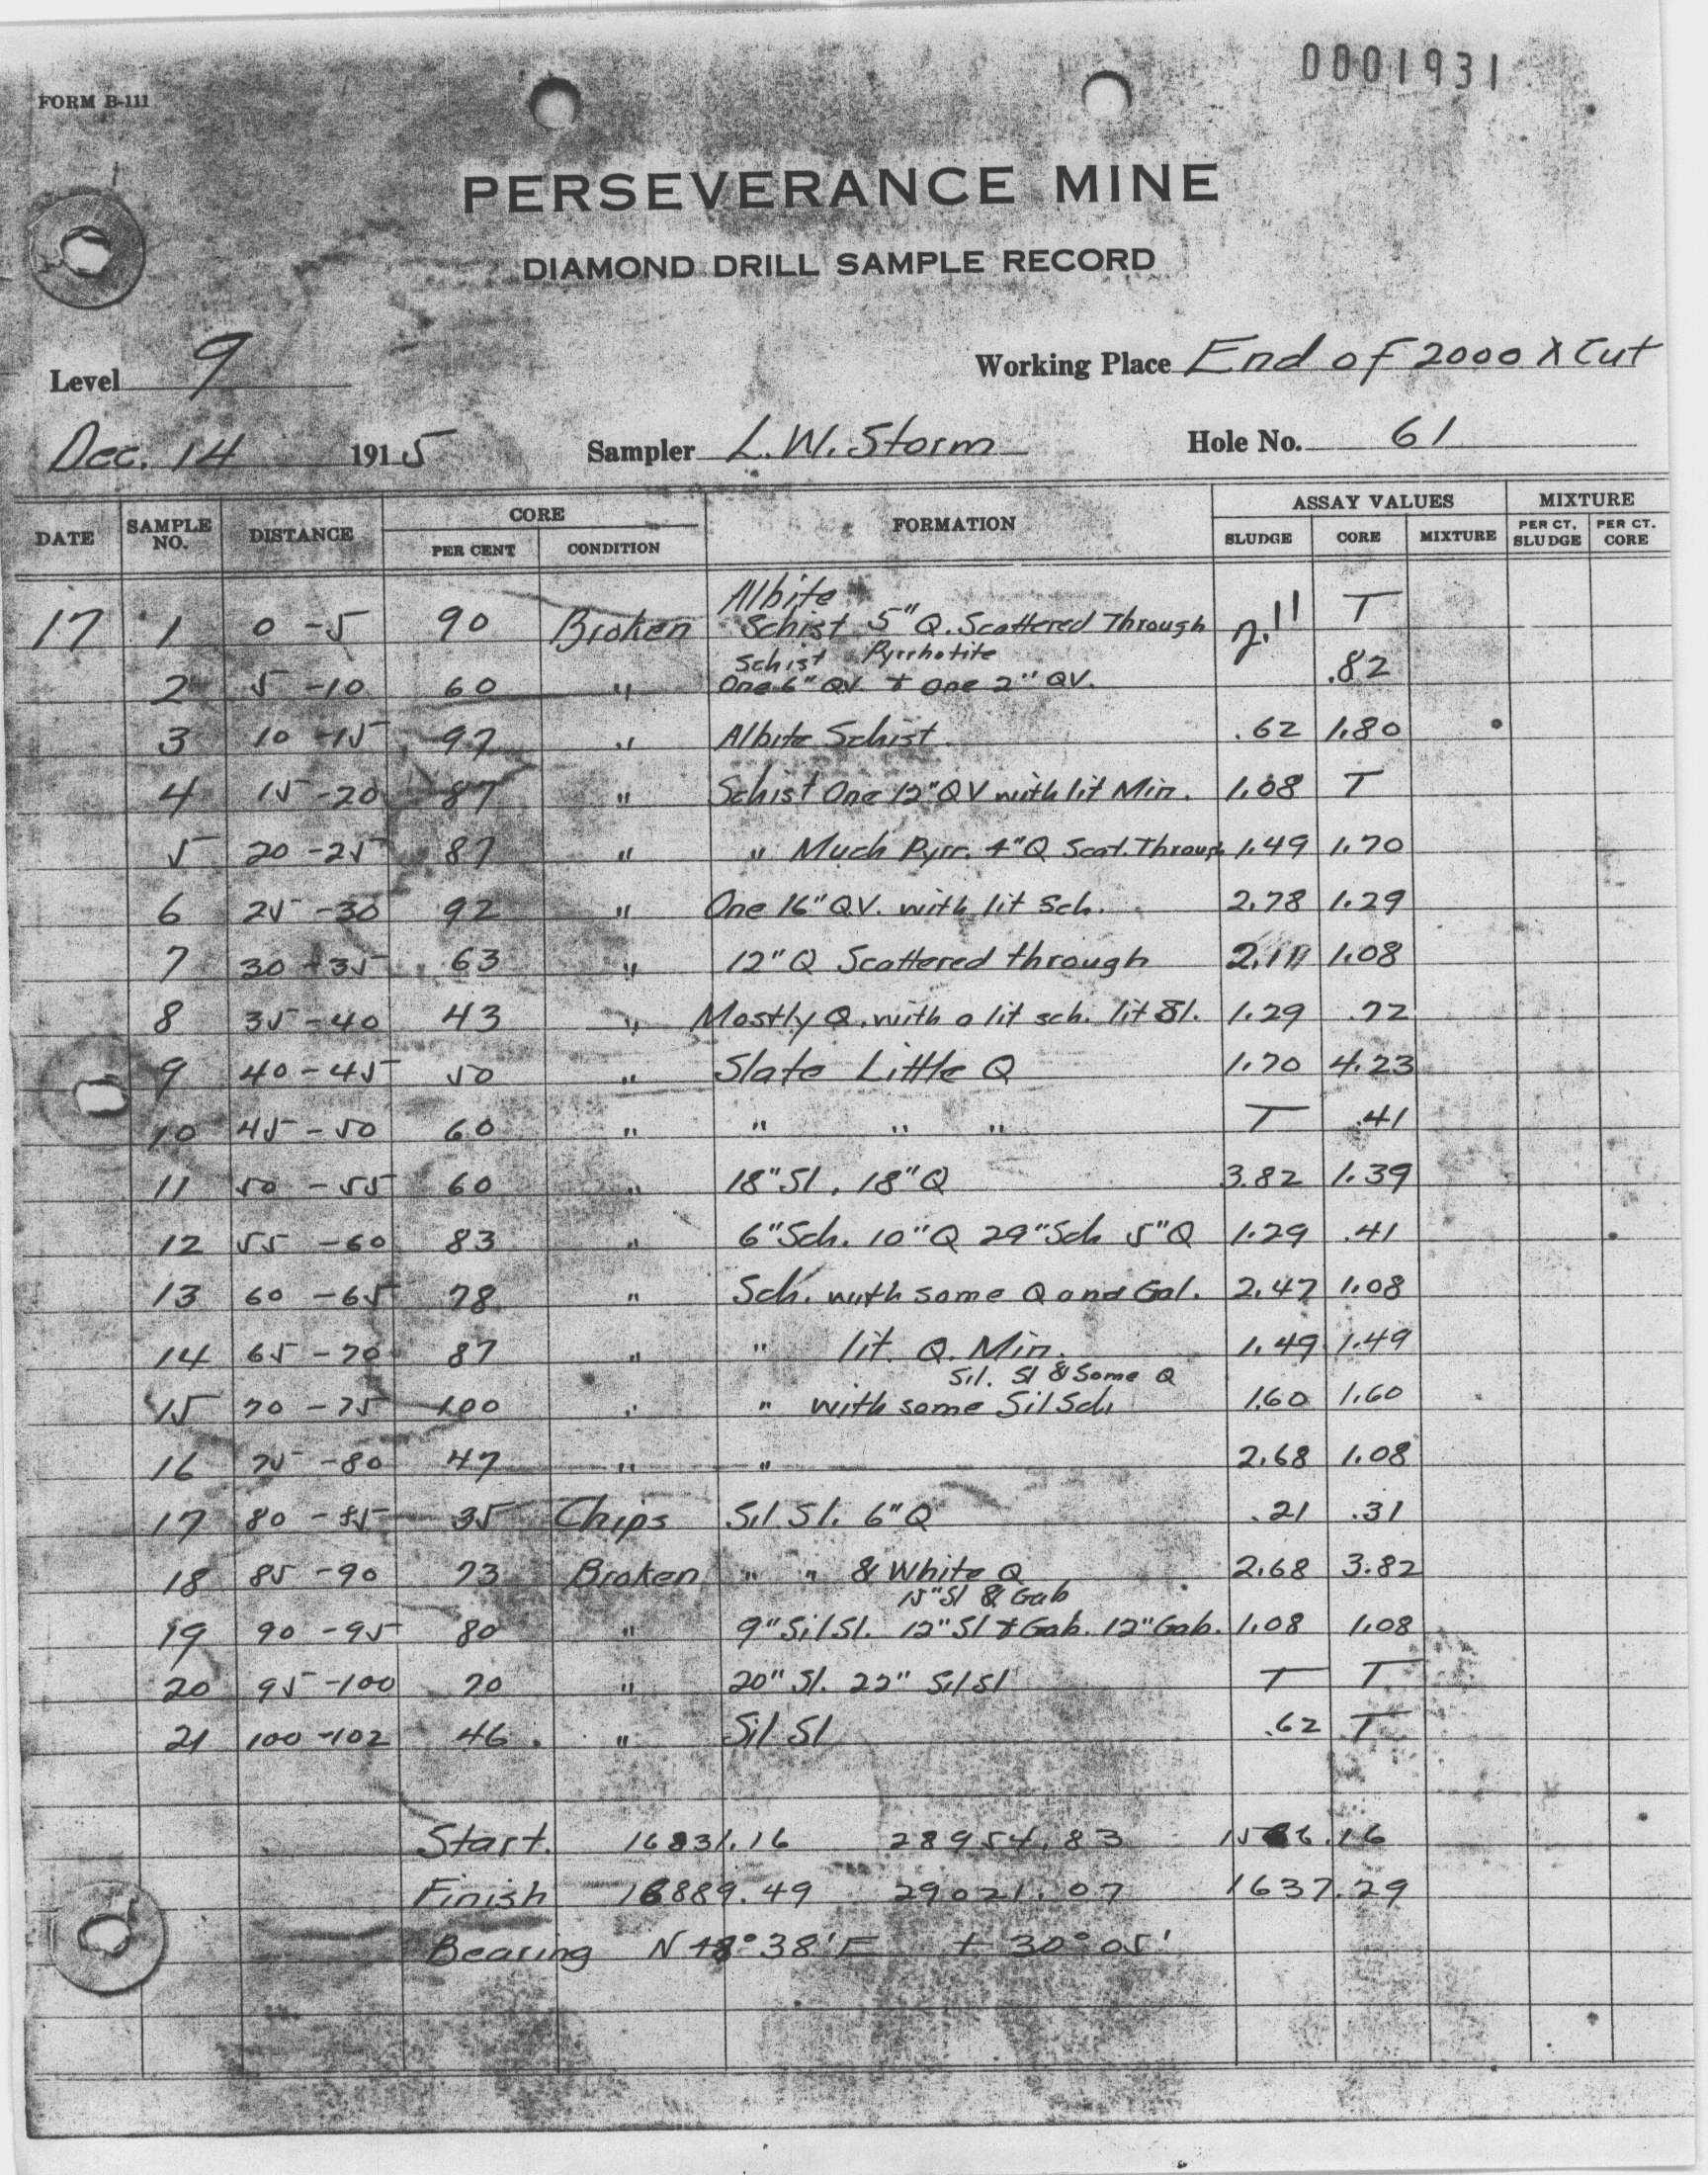 0001931
FORM B-111
PERSEVERANCE MINE
DIAMOND DRILL SAMPLE RECORD
Level 9 Working Place End of 2000 X Cut
Dec. 14 1915 Sampler L.W. Storm Hole No. 61
DATE SAMPLE NO. DISTANCE CORE PER CENT CONDITION FORMATION ASSAY VALUES SLUDGE CORE MIXTURE MIXTURE PER CT. SLUDGE PER CT. CORE
Albite
17 1 0-5 90 Broken Schist 5" Q. Scattered Through 2.11 T
Schist Pyrrhotite
2 5-10 60 " One 6" QV. + One 2" QV. .82
3 10-15 97 " Albite Schist .62 1.80
4 15-20 87 " Schist One 12" QV with lit Min. 1.08 T
5 20-25 87 " " Much Pyrr. 4" Q Scat. Through 1.49 1.70
6 25-30 92 " One 16" QV. with lit Sch. 2.78 1.29
7 30-35 63 " 12" Q Scattered through 2.11 1.08
8 35-40 43 " Mostly Q. with a lit sch. lit Sl. 1.29 .72
9 40-45 50 " Slate Little Q 1.70 4.23
10 45-50 60 " " " " T .41
11 50-55 60 " 18" Sl, 18" Q 3.82 1.39
12 55-60 83 " 6" Sch. 10" Q 29" Sch 5" Q 1.29 .41
13 60-65 78 " Sch. with some Q and Gal. 2.47 1.08
14 65-70 87 " " lit. Q. Min. 1.49 1.49
Sil. Sl & Some Q
15 70-75 100 " " with some Sil Sch 1.60 1.60
16 75-80 47 " " 2.68 1.08
17 80-85 35 Chips Sil Sl. 6" Q .21 .31
18 85-90 73 Broken " " & White Q 2.68 3.82
15" Sl & Gab
19 90-95 80 " 9" Sil Sl. 12" Sl & Gab. 12" Gab. 1.08 1.08
20 95-100 70 " 20" Sl. 22" Sil Sl T T
21 100-102 46 " Sil Sl .62 T
Start. 16831.16 28954.83
Finish 16889.49 29021.07 1637.29
Bearing N 48°38' E + 30°05'